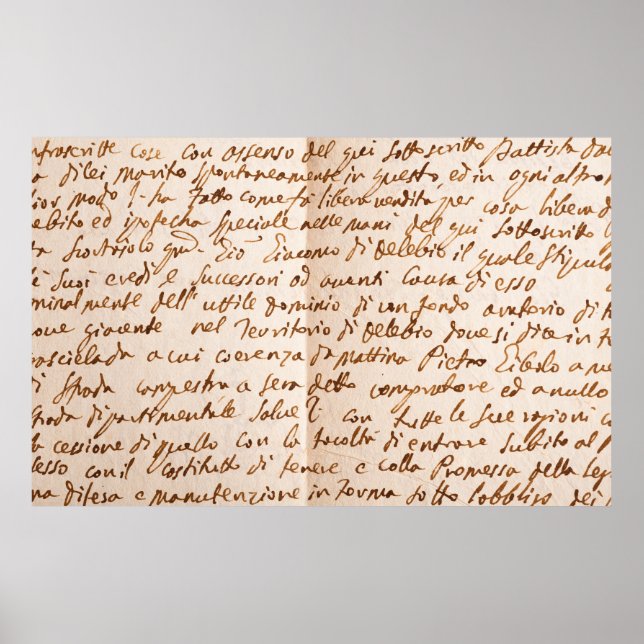 nfrascritte cose con assenso del qui sottoscritto Battista da
a di lei marito spontaneamente in questo, ed in ogni altro
lior modo l- ha fatto come fa libera vendita per cosa libera d
ebito ed ipotecha speciale nelle mani del qui sottoscritto
ta qm. Gio Giacomo di Delebio il quale stipula
è suoi eredi e successori ed aventi causa di esso
minalmente dell' uttile dominio di un fondo aratorio di
oue giacente nel Territorio di Delebio dove si dice in
a cui coerenza da mattina Pietro a
di strada campestra a sera detto compratore ed a nullo
strada dipartimentale salve con tutte le sue ragioni
la cessione di quello con la facoltà di entrare subito al
esso con il costitutto di tenere e colla Promessa della
na difesa e manutenzione in forma sotto l'obbligo dei